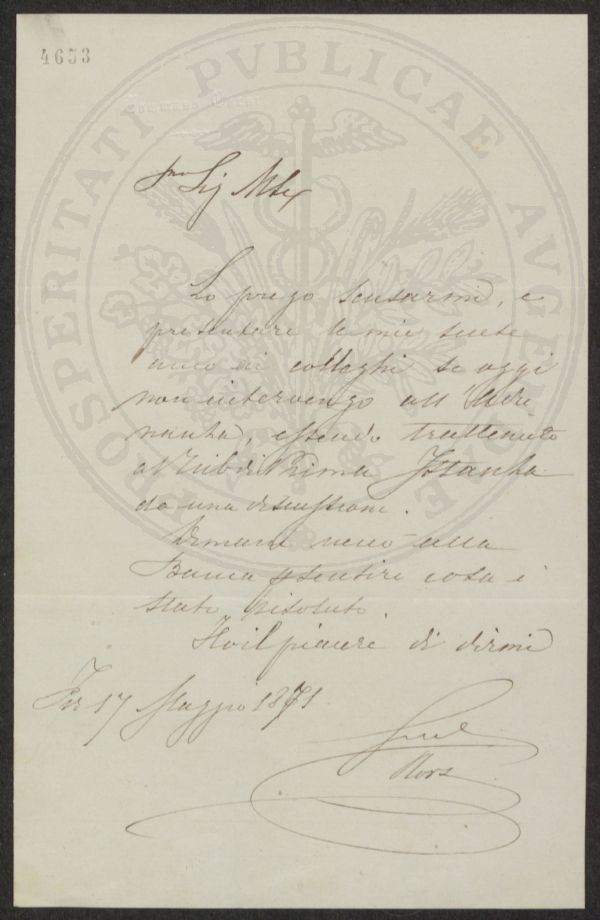 4653
PROSPERITATI PVBLICAE AVGENDAE
Sig
Lo prego scusarmi, e
presentare le mie scuse
anco ai colleghi se oggi
non intervengo all'Adu
nanza, essendo trattenuto
al Trib di Prima Istanza
da una discussione.
Domani verrò alla
Banca p sentire cosa è
stato risoluto.
Ho il piacere di dirmi
17 Maggio 1871